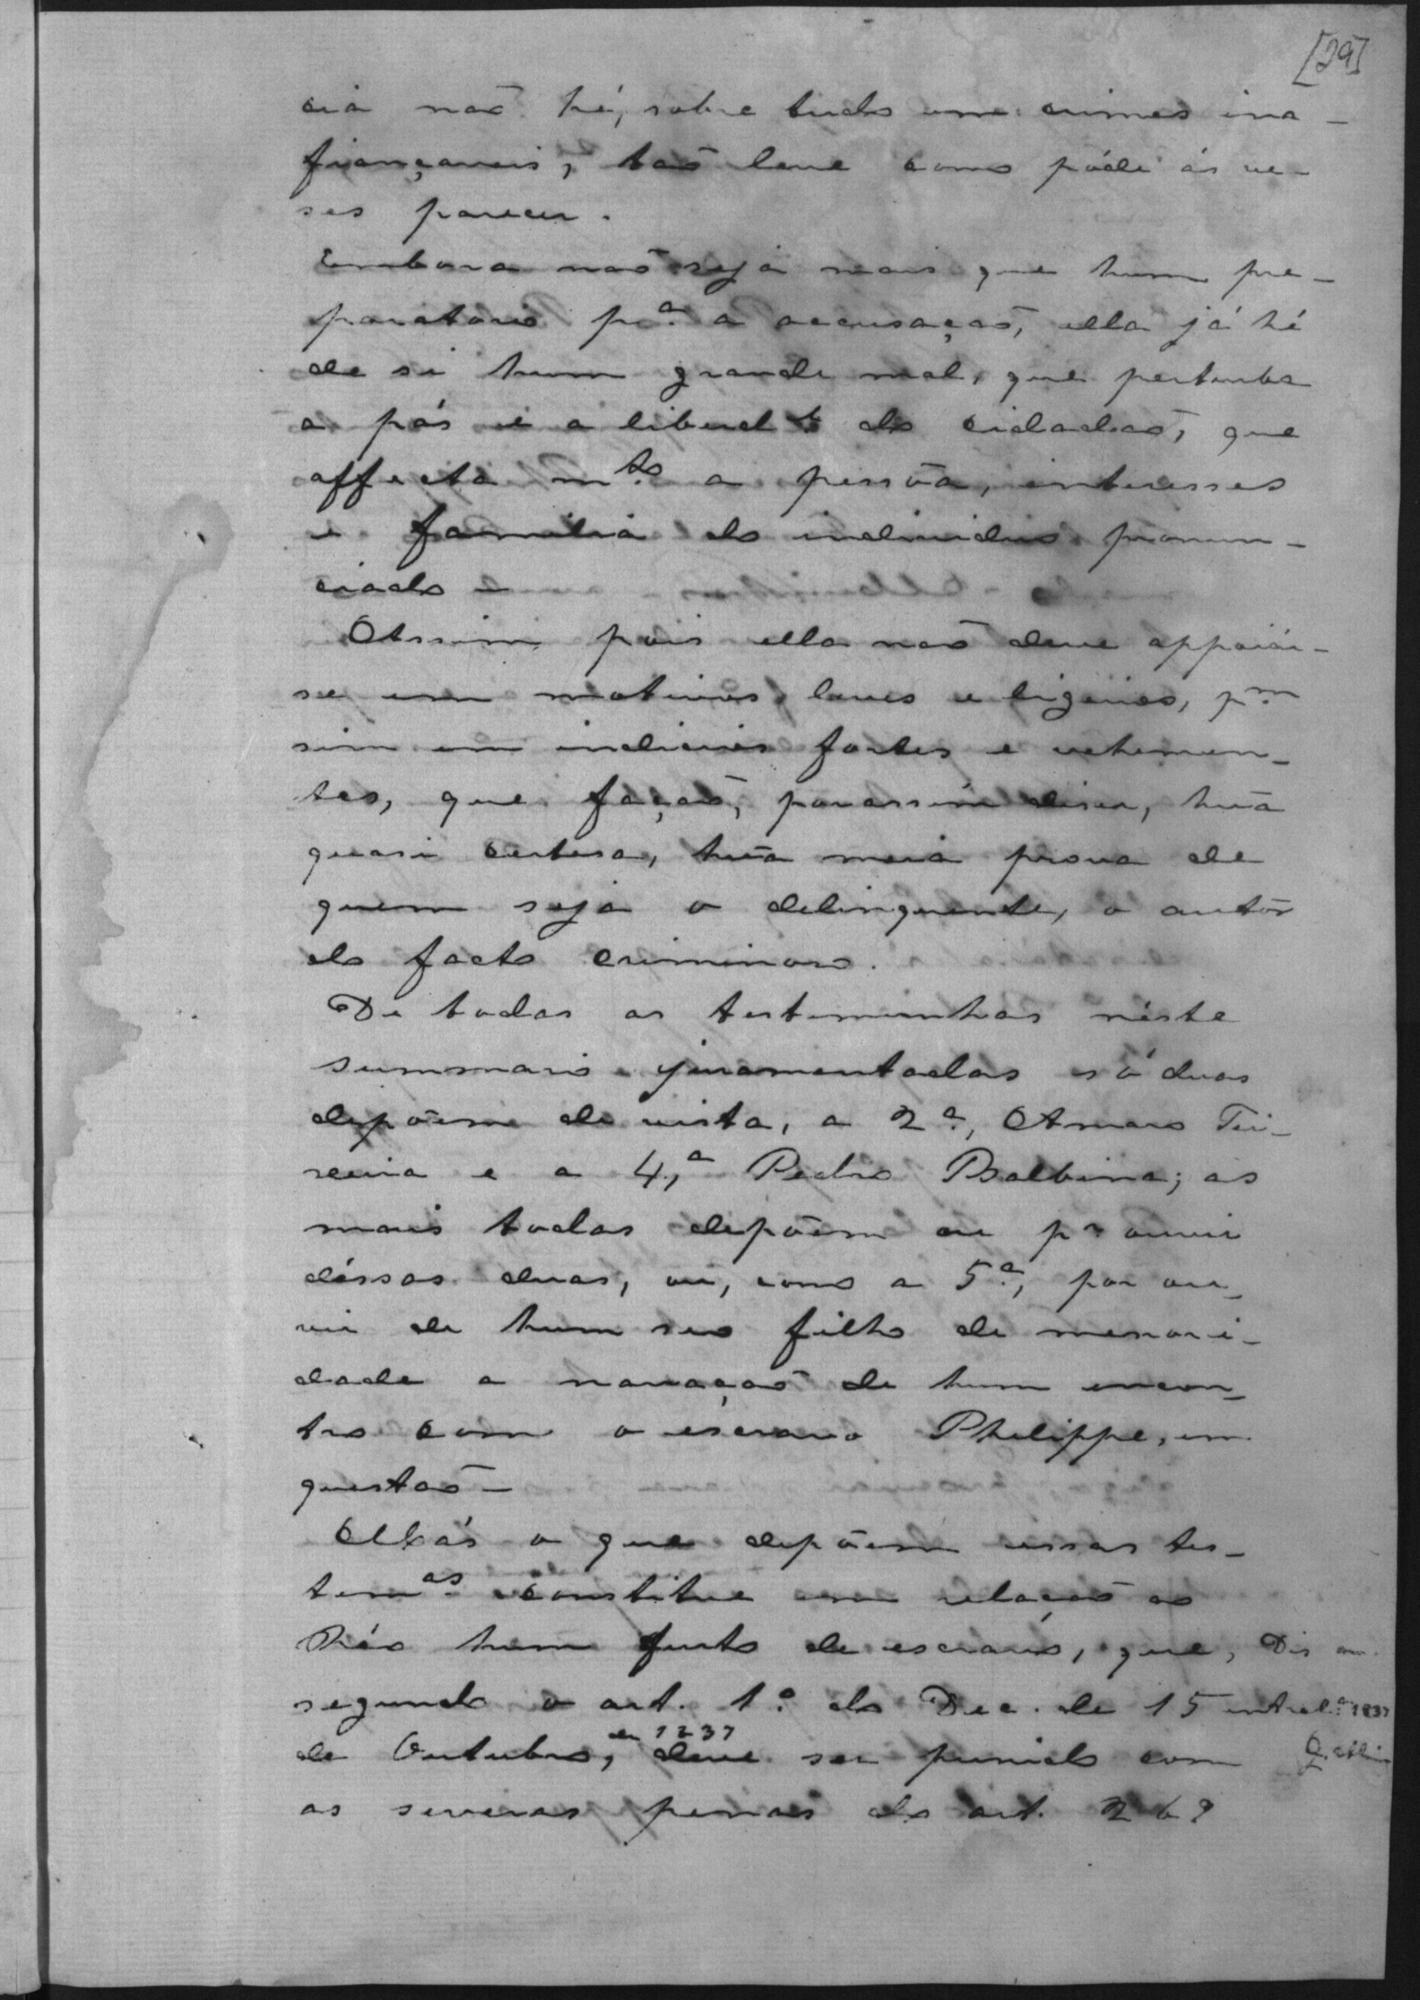 [29]
cia não hé, sobre tudo em crimes ina-
fiançaveis, tão leve como póde ás ve-
ses parecer.
Embora não seja mais que hum pre-
paratorio pª. a accusação, ella já hé
de si hum grande mal, que perturba
a pás e a liberdᵉ do cidadão, que
affecta mᵗᵒ. a pessôa, interesses
e familia do individuo pronun-
ciado –
Assim pois ella não deve appoiar-
se em motivos leves e ligeiros, pᵐ
sim em indicios fortes e vehemen-
tes, que fação, por assim diser, hũa
quasi certesa, hũa meia prova de
quem seja o delinquente, o autôr
do facto criminoso.
De todas as testeminhas néste
summario juramentadas só duas
depõem de vista, a 2ª., Amaro Tei-
xeira e a 4,ª Pedro Balbina; as
mais todas depõem ou pʳ ouvir
déssas duas, ou, como a 5ª., por ou-
vir de hum seo filho de menori-
dade a narração de hum encon-
tro com o éscravo Philippe, em
questão –
Aliás o que depõem essas tes-
temᵃˢ. constitue em relação ao
Réo hum furto de escravo, que,
segundo o art. 1º. do Dec. de 15
de Outubro, de 1237 deve ser punido com
as severas penas do art. 269
Dis
entrelª. 1837